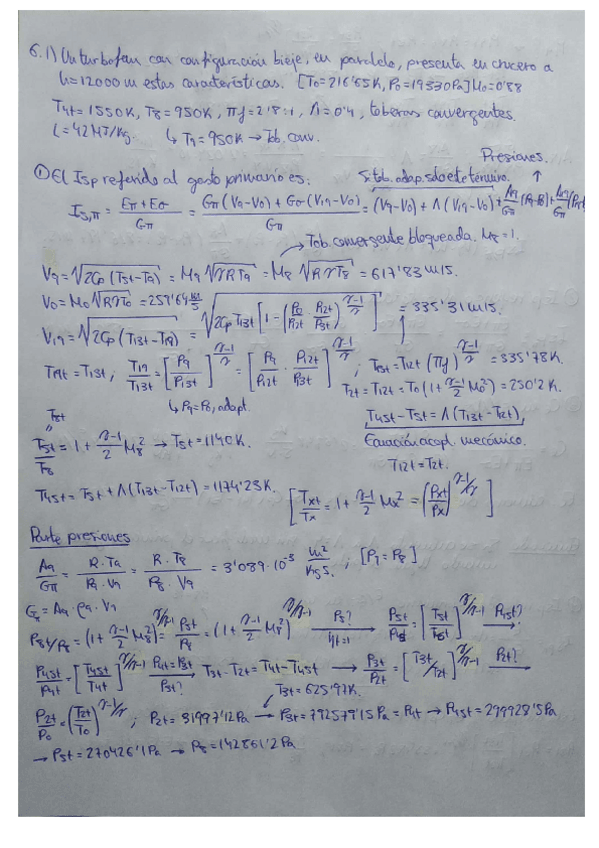 6.1) Un turbofan con configuración bieje, en paralelo, presenta en crucero a
h=12000m estas características. [T0=216'65K, P0=19330Pa] M0=0'88
T4t=1550K, T8=950K, πf=2'8:1, Λ=0'4, toberas convergentes.
L=42MJ/Kg. ↳ T9=950K → Tob. conv.
Presiones.
① El Isp referido al gasto primario es: Si tob. adap. sólo este término.
Is,π = (Eπ+Eσ)/Gπ = (Gπ(V9-V0)+Gσ(V19-V0))/Gπ = (V9-V0)+Λ(V19-V0)+A9/Gπ
Tob. convergente bloqueada. M8=1.
V9=√(2Cp(T5t-T9)) = M9√(γRT9) = M8√(RγT8) = 617'83 m/s.
V0=M0√(RγT0)=259'64 m/s
V19=√(2Cp(T13t-T19)) = √(2CpT13t[1-(P0/P2t · P2t/P3t)^(γ-1/γ)]) = 335'31 m/s.
T19t=T13t; T19/T13t=[P9/P13t]^(γ-1/γ)=[P9/P12t · P12t/P13t]^(γ-1/γ); T13t=T12t(πf)^(γ-1/γ)=335'78K.
↳ P9=P0, adapt. T2t=T12t=T0(1+γ-1/2 M0²)=250'2K.
T8t
T5t/T8=1+γ-1/2 M8² → T5t=1140K. T45t-T5t=Λ(T13t-T12t),
Ecuación acopl. mecánico.
T12t=T2t.
T45t=T5t+Λ(T13t-T12t)=1174'23K. [Txt/Tx=1+γ-1/2 Mx²=(Pxt/Px)^(γ-1/γ)]
Parte presiones
A9/Gπ = R·T9/P9·V9 = R·T8/P8·V9 = 3'089·10^-3 m²/Kg s.; [P9=P8]
G9=A9·ρ9·V9
P8t/P8=(1+γ-1/2 M8²)^(γ/γ-1)=P5t/P8=(1+γ-1/2 M8²)^(γ/γ-1) P8? → P5t/P45t=[T5t/T45t]^(γ/γ-1) P45t? →
P45t/P4t=[T45t/T4t]^(γ/γ-1) P4t=P3t → P3t? T3t-T2t=T4t-T45t → P3t/P2t=[T3t/T2t]^(γ/γ-1) P2t? →
T3t=625'97K.
P2t/P0=(T2t/T0)^(γ-1/γ); P2t=31997'12Pa → P3t=792579'15Pa=P4t → P45t=299928'5Pa
→ P5t=270426'1Pa → P8=142861'2Pa